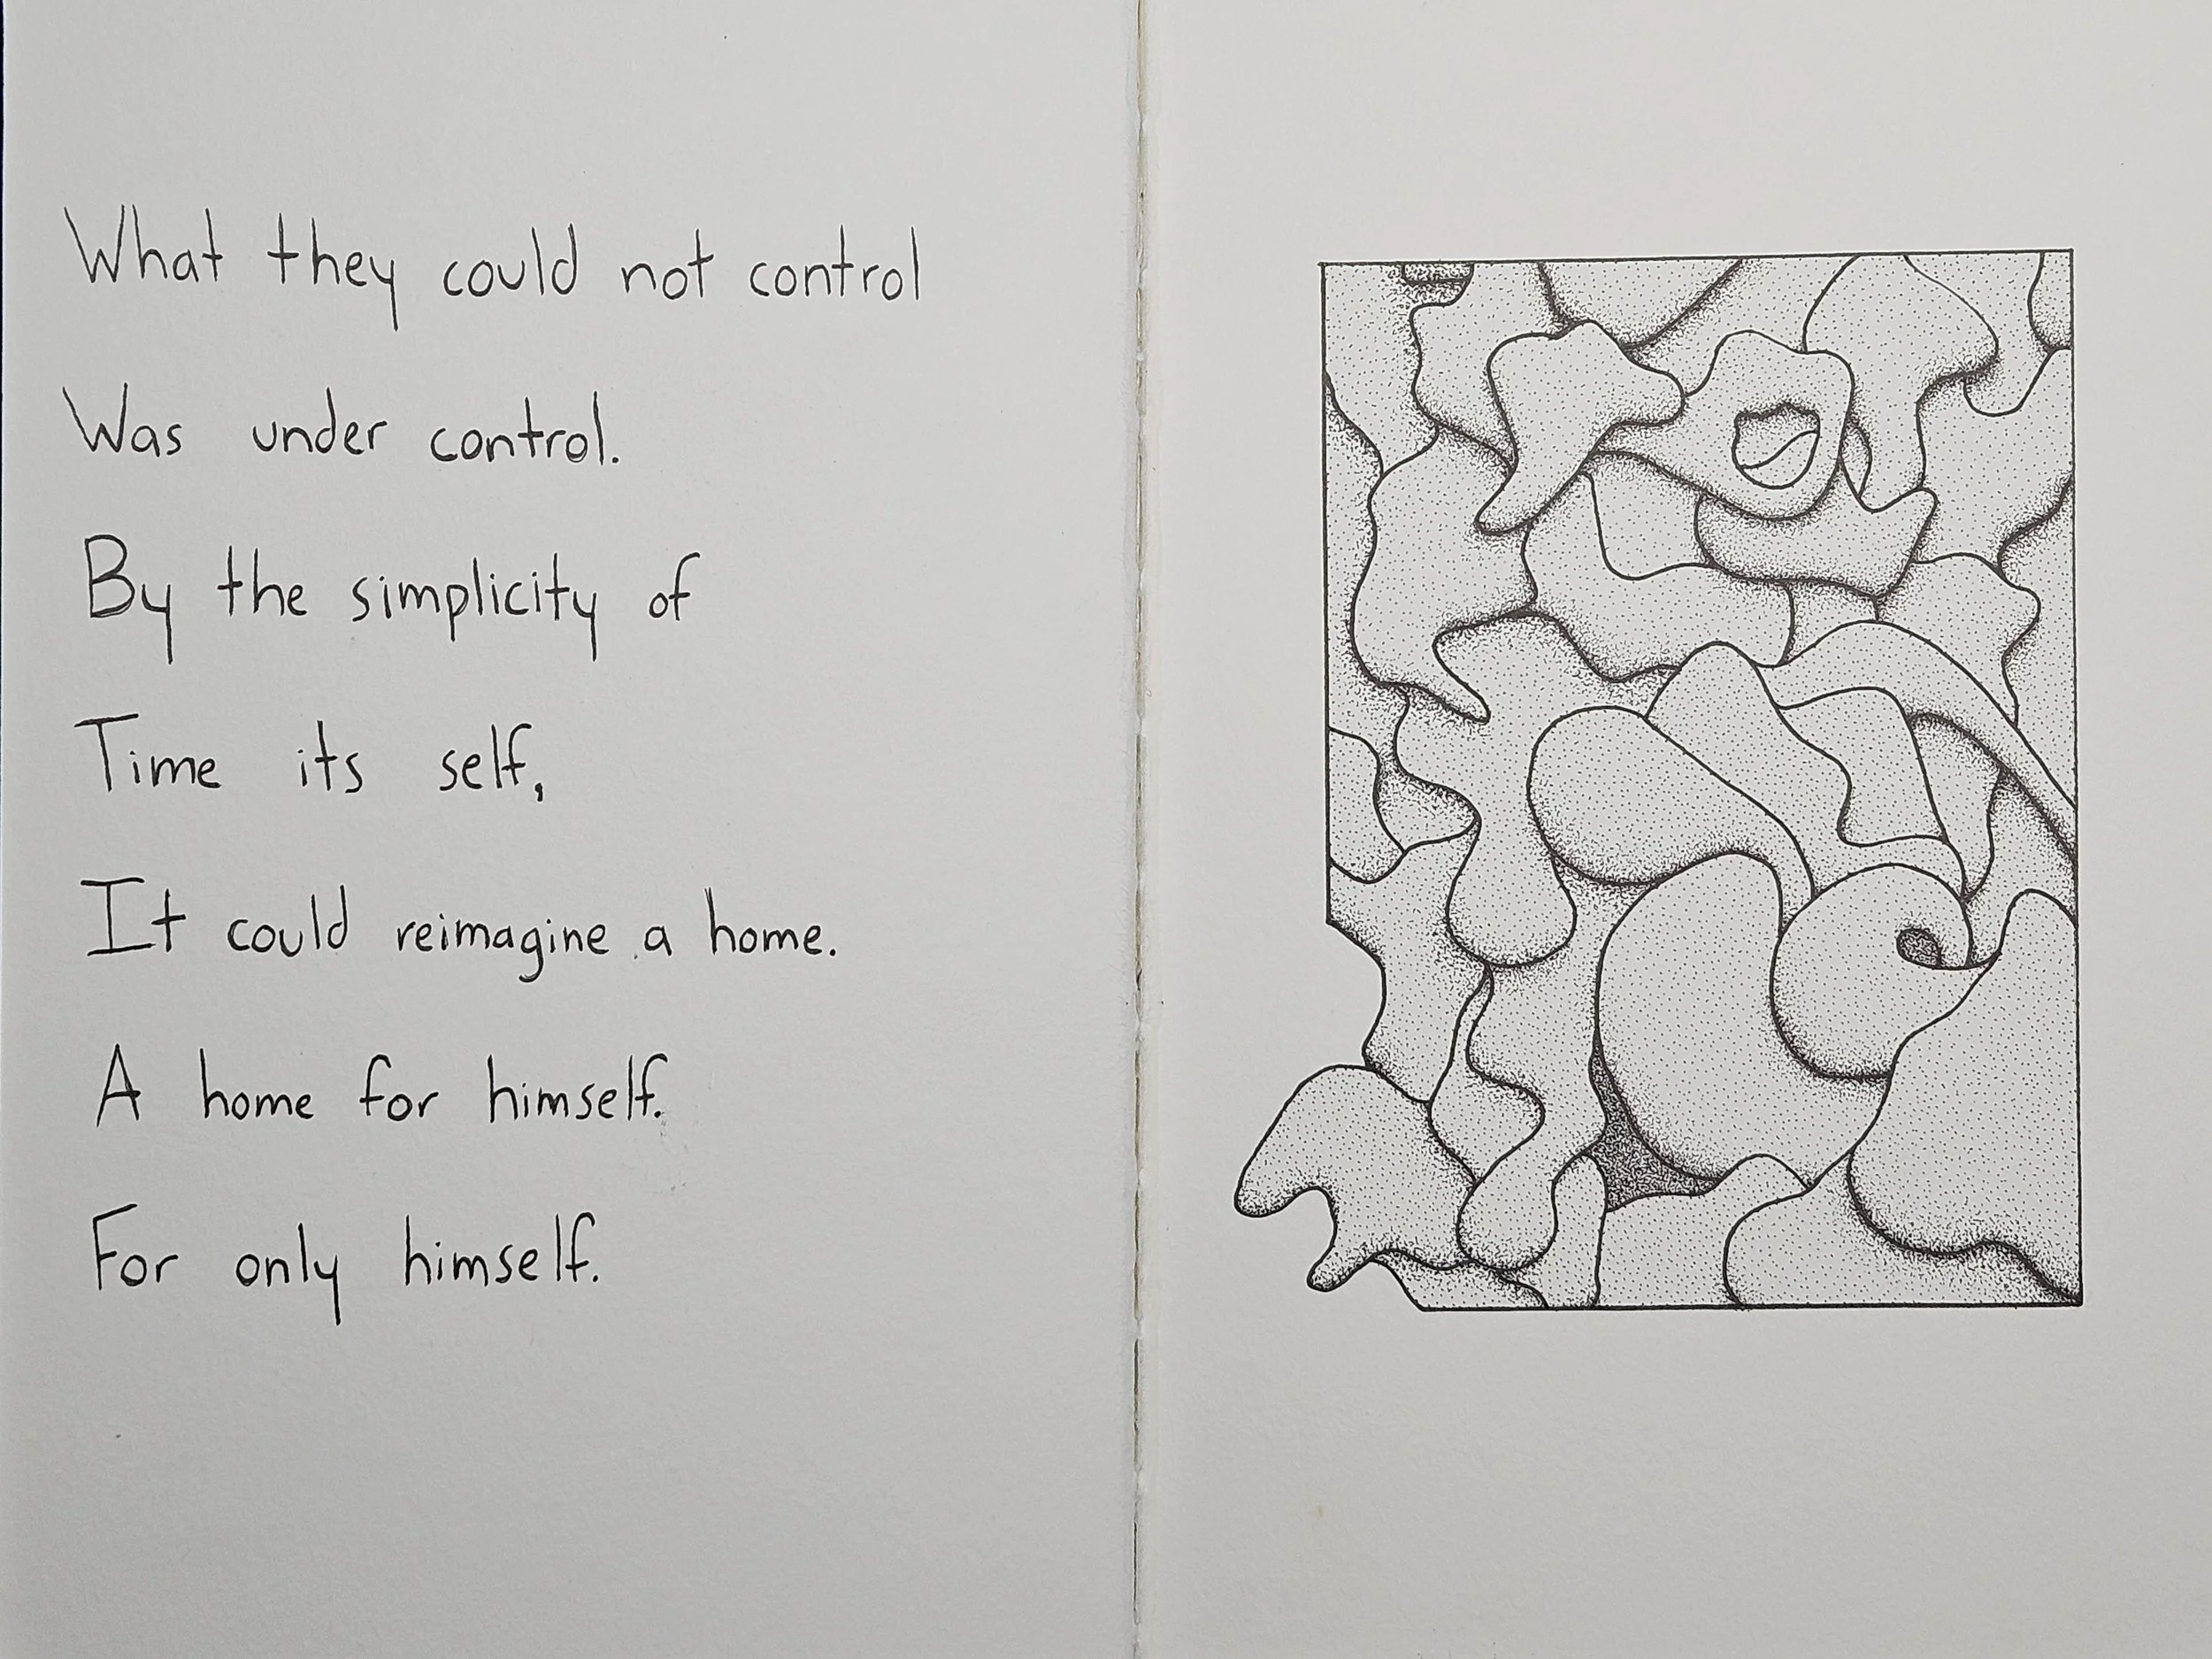 What they could not control
Was under control.
By the simplicity of
Time its self,
It could reimagine a home.
A home for himself.
For only himself.